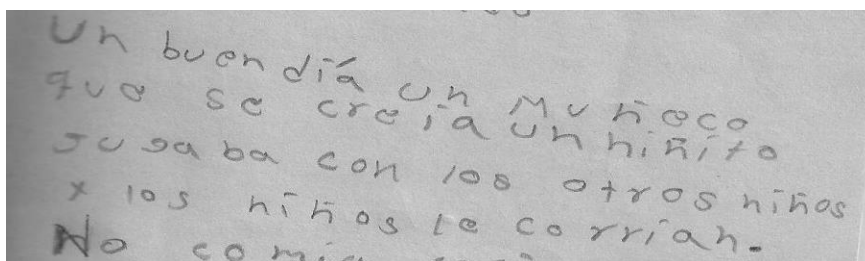 Un buen día un Muñeco
que se creía un niñito
Jugaba con los otros niños
x los niños le corrían.
No